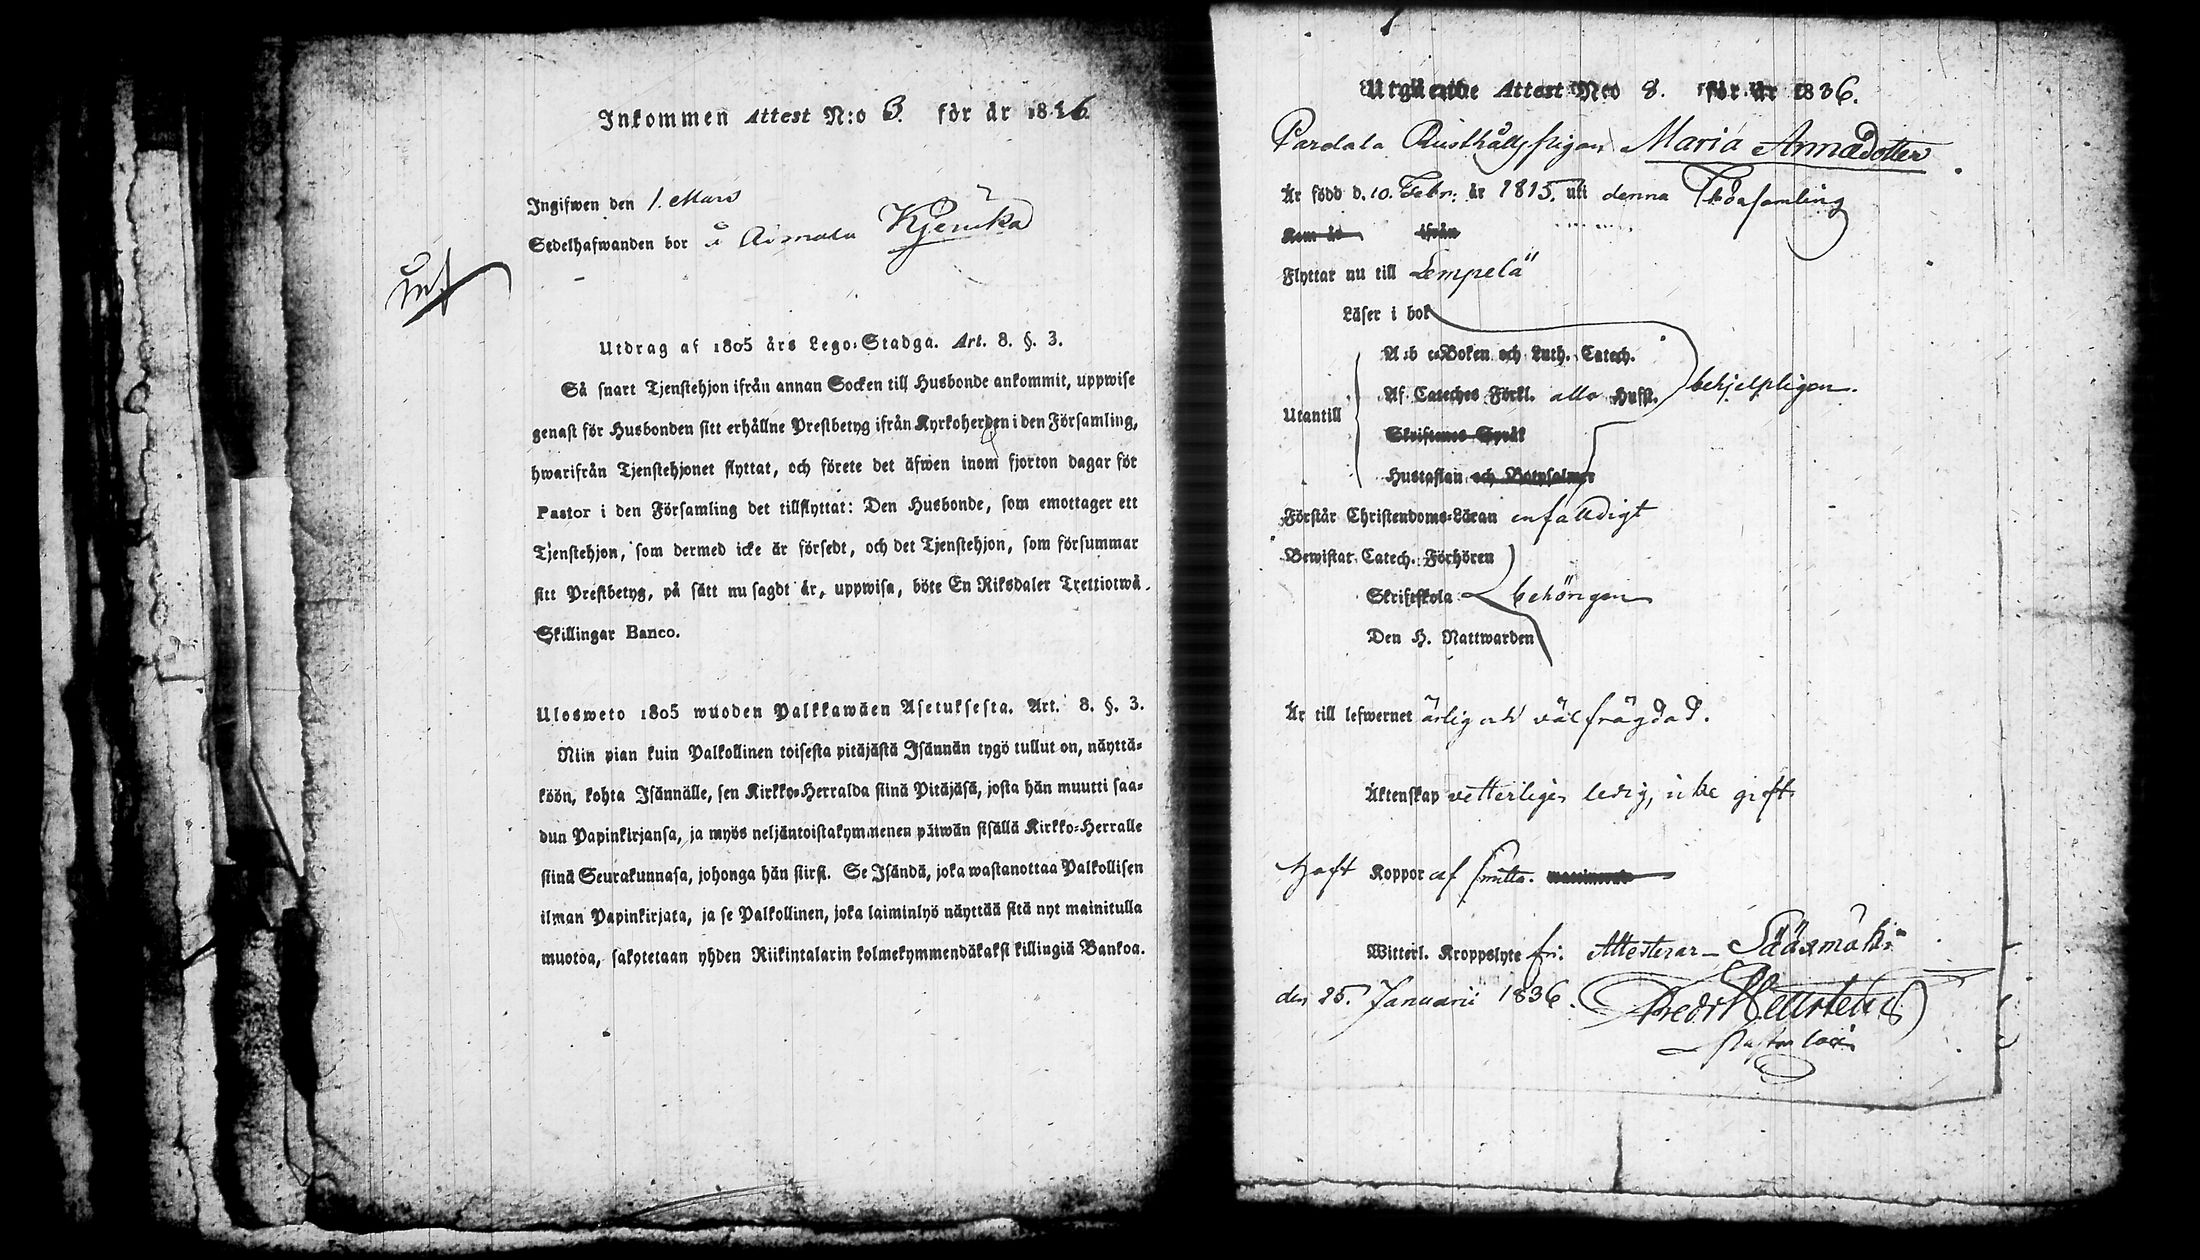 Inkommen Attest N:o 3. för år 1836
Ingifwen den 1. Mars
Sedelhafwanden bor i
Utdrag af 1805 års Lego-Stadga. Art. 8. §. 3.
Så snart Tjenstehjon ifrån annan Socken till Husbonde ankommit, uppwise
genast för Husbonden sitt erhållne Prestbetyg ifrån Kyrkoherden i den Församling,
hwarifrån Tjenstehjonet flyttat, och förete det äfwen inom fjorton dagar för
Pastor i den Församling det tillflyttat: Den Husbonde, som emottager ett
Tjenstehjon, som dermed icke är försedt, och det Tjenstehjon, som försummar
sitt Prestbetyg, på sätt nu sagdt är, uppwisa, böte En Riksdaler Trettiotwå
Skillingar Banco.
Ulosweto 1805 wuoden Palkkawäen Asetuksesta. Art. 8. §. 3.
Niin pian kuin Palkollinen toisesta pitäjästä Isännän tygö tullut on, näyttä-
köön, kohta Isännälle, sen Kirkko-Herralda siinä Pitäjäsä, josta hän muutti saa-
dun Papinkirjansa, ja myös neljäntoistakymmenen päiwän sisällä Kirkko-Herralle
siinä Seurakunnasa, johonga hän siirsi. Se Isändä, joka wastanottaa Palkollisen
ilman Papinkirjata, ja se Palkollinen, joka laiminlyö näyttää sitä nyt mainitulla
muotoa, sakotetaan yhden Riikintalarin kolmekymmendäkaksi killingiä Bankoa.
Utgående Attest N:o 8. för år 1836.
Pardala Rusthållspigan Maria Annædotter
Är född d. 10. Febr. år 1815. uti denna Församling
Kom år ifrån
Flyttar nu till Lempelä
Läser i bok
A-b-c-Boken och Luth. Catech.
Af Cateches Förkl. alla Hufst. behjelpligen.
Utantill
Skriftenes Språk
Hustaflan och Botpsalmer
Förstår Christendoms-Läran enfalldigt
Bewistat Catech. Förhören
Skriftskola behörigen
Den H. Nattwarden
Är till lefwernet ärlig och väl frägdad.
Äktenskap vetterligen ledig, icke gift
Haft Koppor af smitta. vaccinerad
Witterl. Kroppslyte fri. Attesterar Sääxmäki
den 25. Januarii 1836.